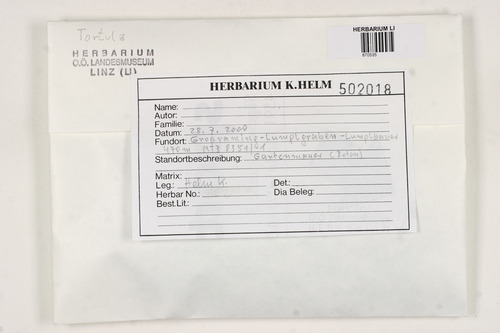 Tortula
HERBARIUM
O.Ö. LANDESMUSEUM
LINZ (LI)
HERBARIUM LI
HERBARIUM K.HELM
502018
Name:
Autor:
Familie:
Datum: 28. 7. 2000
Fundort: Großraming-Lumplgraben-Lumplbauer
470m MTB 8151/1
Standortbeschreibung: Gartenmauer (Beton)
Matrix:
Leg.: Helm K. Det.:
Herbar No.: Dia Beleg:
Best.Lit.: